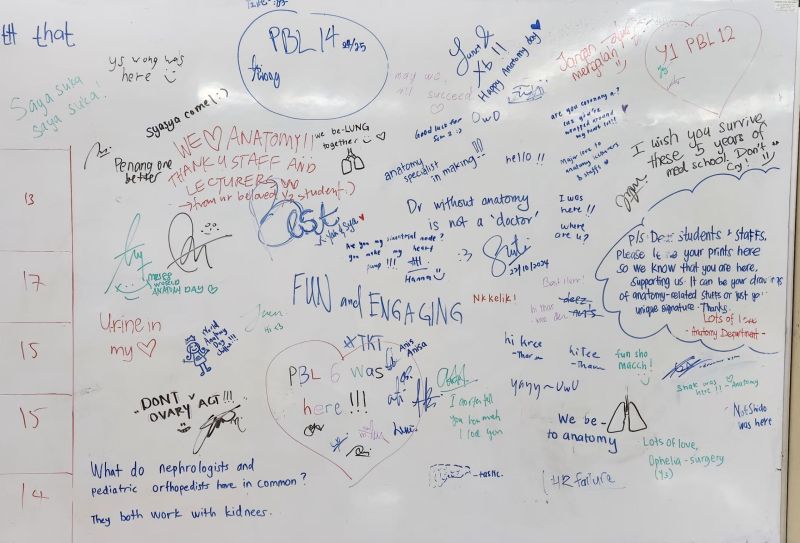 that
ys wong was
here
Saya suka
saya suka!
PBL 14
24/25
Happy Anatomy Day
Y1 PBL 12
may we
all succeed
syasya come! :)
WE ANATOMY!!
THANK U STAFF AND
LECTURERS
→ from ur beloved Y2 student :)
we be-LUNG
together
Penang one
better
Good luck for
Sem 2 :)
OwO
anatomy
specialist
in making
hello!!
are you coronary a.?
cus you're
wrapped around
my heart
Major love to
anatomy lecturers
& staffs
I wish you survive
these 5 years of
med school. Don't
Cry!
Best
x Yah & Sya
Dr without anatomy
is not a 'doctor'
I was
here!!
where
are u?
Are you my sinoatrial node?
you make my heart
jump!!!
Hamna
:3
27/10/2024
Pls Dear students + staffs,
Please your prints here
so we know that you are here,
supporting us. It can be your
of anatomy-related stuffs or just
unique signature. Thanks.
Lots of
- Anatomy Department -
13
17
15
15
14
WORLD
ANATOMY DAY
FUN and ENGAGING
Nkkeliki!
deez
nuts
Urine in
my
World
Anatomy
Day
Hi <3
TKT
Anis
Anisa
PBL 6 was
here!!!
hi kree
-Thara
hi Tee
-Tham
fun sho
macch!
yayy~UwU
shak was
here!!
anatomy
- DONT
OVARY ACT!!!
you how much
I love you
We be-
to anatomy
NotShido
was here
Lots of love,
Ophelia - surgery
(Y5)
What do nephrologists and
pediatric orthopedists have in common?
They both work with kidnees.
-tastic.
HR failure